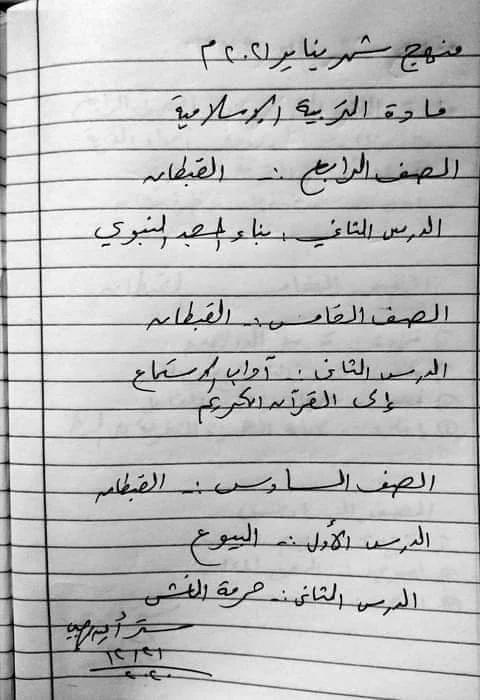 منهج شهر يناير ٢٠٢١ م
مادة التربية الإسلامية
الصف الرابع :- القبطان
الدرس الثاني : بناء المسجد النبوي
الصف الخامس :- القبطان
الدرس الثاني :- آداب الاستماع
إلى القرآن الكريم
الصف السادس :- القبطان
الدرس الأول :- البيوع
الدرس الثاني :- حرمة الغش
١٢/٢١
٢٠٢٠